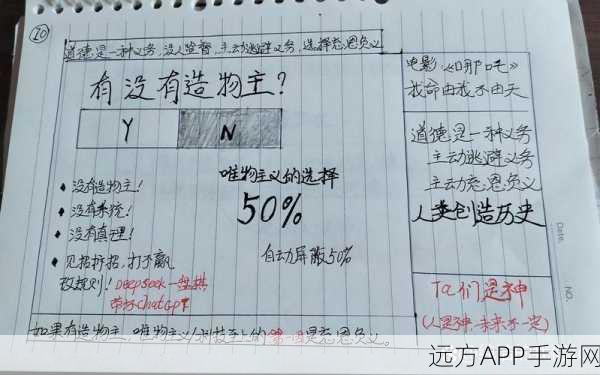 20
道德是一种义务,没人监督,主动逃避义务,选择忘恩负义
有没有造物主?
Y N
唯物主义的选择
50%
自动屏蔽50%
• 没有造物主!
• 没有系统!
• 没有真理!
• 见招拆招,打不赢
改规则!DeepSeek一盘棋
ChatGPT
如果有造物主,唯物主义/科技至上的第一因是忘恩负义。
电影《哪吒》
我命由我不由天
道德是一种义务
主动逃避义务
主动忘恩负义
人类创造历史
Ta们是神
(人是神-未来不一定)
Date.
NO.
远方APP手游网